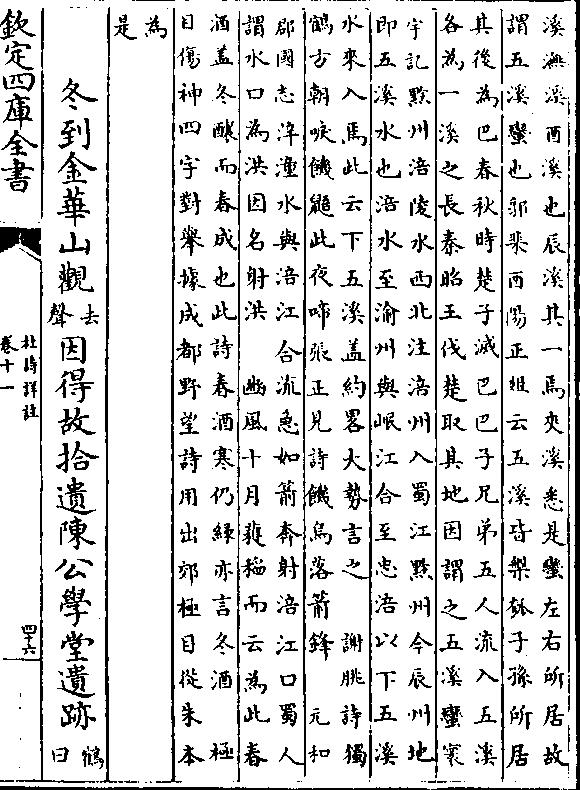 溪潕溪酉溪也辰溪其一焉夾溪悉是蠻左右所居故
謂五溪蠻也邪梁酉陽正俎云五溪皆槃瓠子孫所居
其後為巴春秋時楚子滅巴巴子兄弟五人流入五溪
各為一溪之長秦昭王伐楚取其地因謂之五溪蠻寰
宇記黔州涪陵水西北注涪州入蜀江黔州今辰州地
即五溪水也涪水至渝州與岷江合至忠涪以下五溪
水來入焉此云下五溪蓋約畧大勢言之　謝朓詩獨
鶴方朝唳饑鼯此夜啼張正見詩饑烏落箭鋒　元和
郡國志涪潼水與涪江合流急如箭奔射涪江口蜀人
謂水口為洪因名射洪　豳風十月穫稻而云為此春
酒蓋冬釀而春成也此詩春酒寒仍緑亦言冬酒　極
目傷神四字對舉據成都野望詩用出郊極目從朱本
為
是
冬到金華山觀去聲因得故拾遺陳公學堂遺跡鶴曰
欽定四庫全書
杜詩詳註
卷十一
四十六